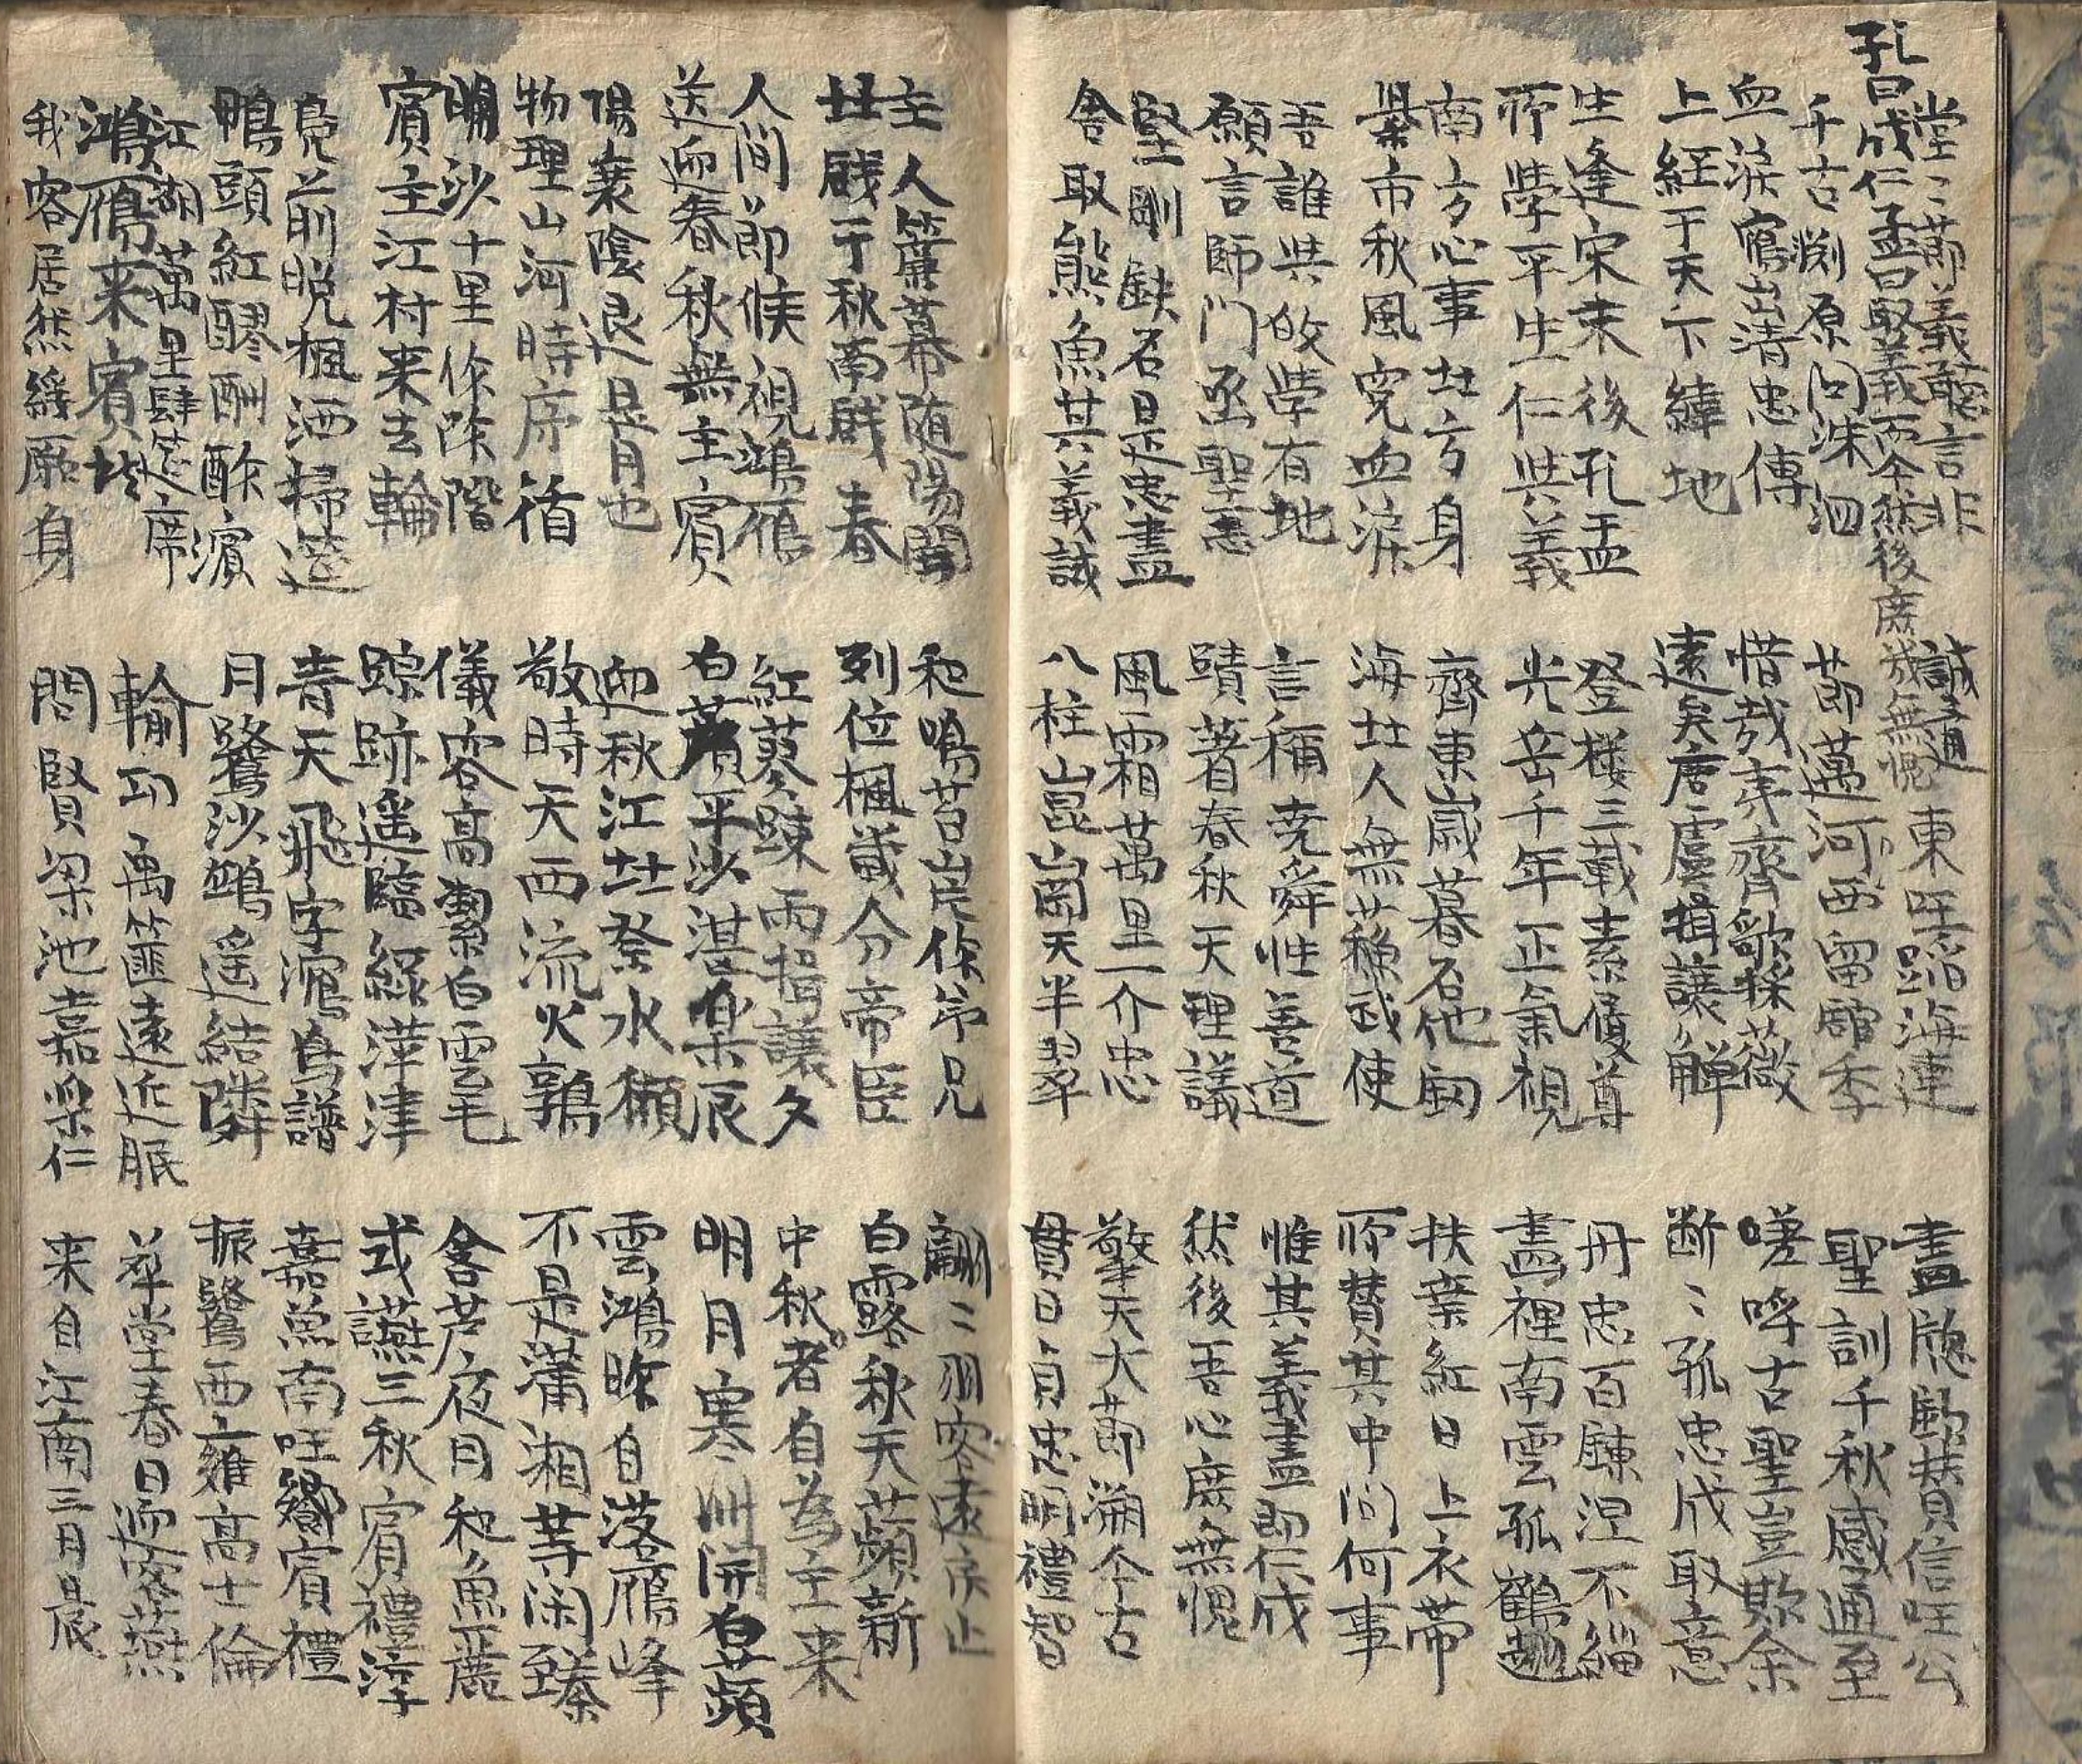 孔曰成仁孟曰取義而今然後庶幾無愧
堂〻節義聽言非誠道
東 蹈海連
盡 信 公
千古淵原问洙泗
節邁河西留舘季
聖訓千秋感通至
血淚寫出清忠傳
惜哉 齊歌採薇
嗟呼古聖豈欺余
上經于天下緯地
遠矣唐虞揖讓觶
断〻孤忠成取意
生逢宋末後孔孟
登樓三載素履尊
丹忠百鍊涅不緇
所學平生仁與義
光岳千年正氣槻
畵裡南雲孤鶴翅
南方心事北方身
齊東歲暮石他
扶桒紅日上衣帶
柴市秋風寃血淚
海北人無蘓武使
所賛其中问何事
吾誰與敀學有地
言稱堯舜性善道
惟其義盡即仁成
願言師門丞聖志
蹟著春秋天理議
然後吾心庶無愧
堅剛 名曰是忠盡
風霜萬里一介忠
擎天大節溯今古
舍取熊魚其義誠
八柱崑崗天半翠
貫日貞忠明禮智
主人簾幕随陽開
和鳴苔岸你弟兄
翩〻羽客遠 止
北戱于秋南戱春
列位楓 分帝臣
白露秋天蘋新
人间節候視鴻鴈
紅蓼踈雨揖讓夕
中秋者自為主来
送迎春秋無主賓
白蘋平沙湛樂辰
明月寒洲開白蘋
陽衰陰退是月也
迎秋江北祭水獺
雲鴻昨自落鴈峰
物理山河時序循
敬時天西流火鶉
不是瀟湘等闲臻
明沙十里你除階
儀容高 白雲毛
含芦夜月和魚麗
賓主江村来去輪
踪跡遥臨綠萍津
式讌三秋賓禮淳
凫前晩楓洒掃遥
青天飛字瀉鳥譜
嘉魚南 賓禮
鴨頭紅醪酬酢濱
月鷺沙鷗遥結隣
振鷺西雝高士倫
江湖萬里肆筵席
輸 禹篚遠近眠
草堂春日迎客燕
鴻鴈来賓
我客居然緩厥身
問賢梁池嘉 仁
来自江南三月晨